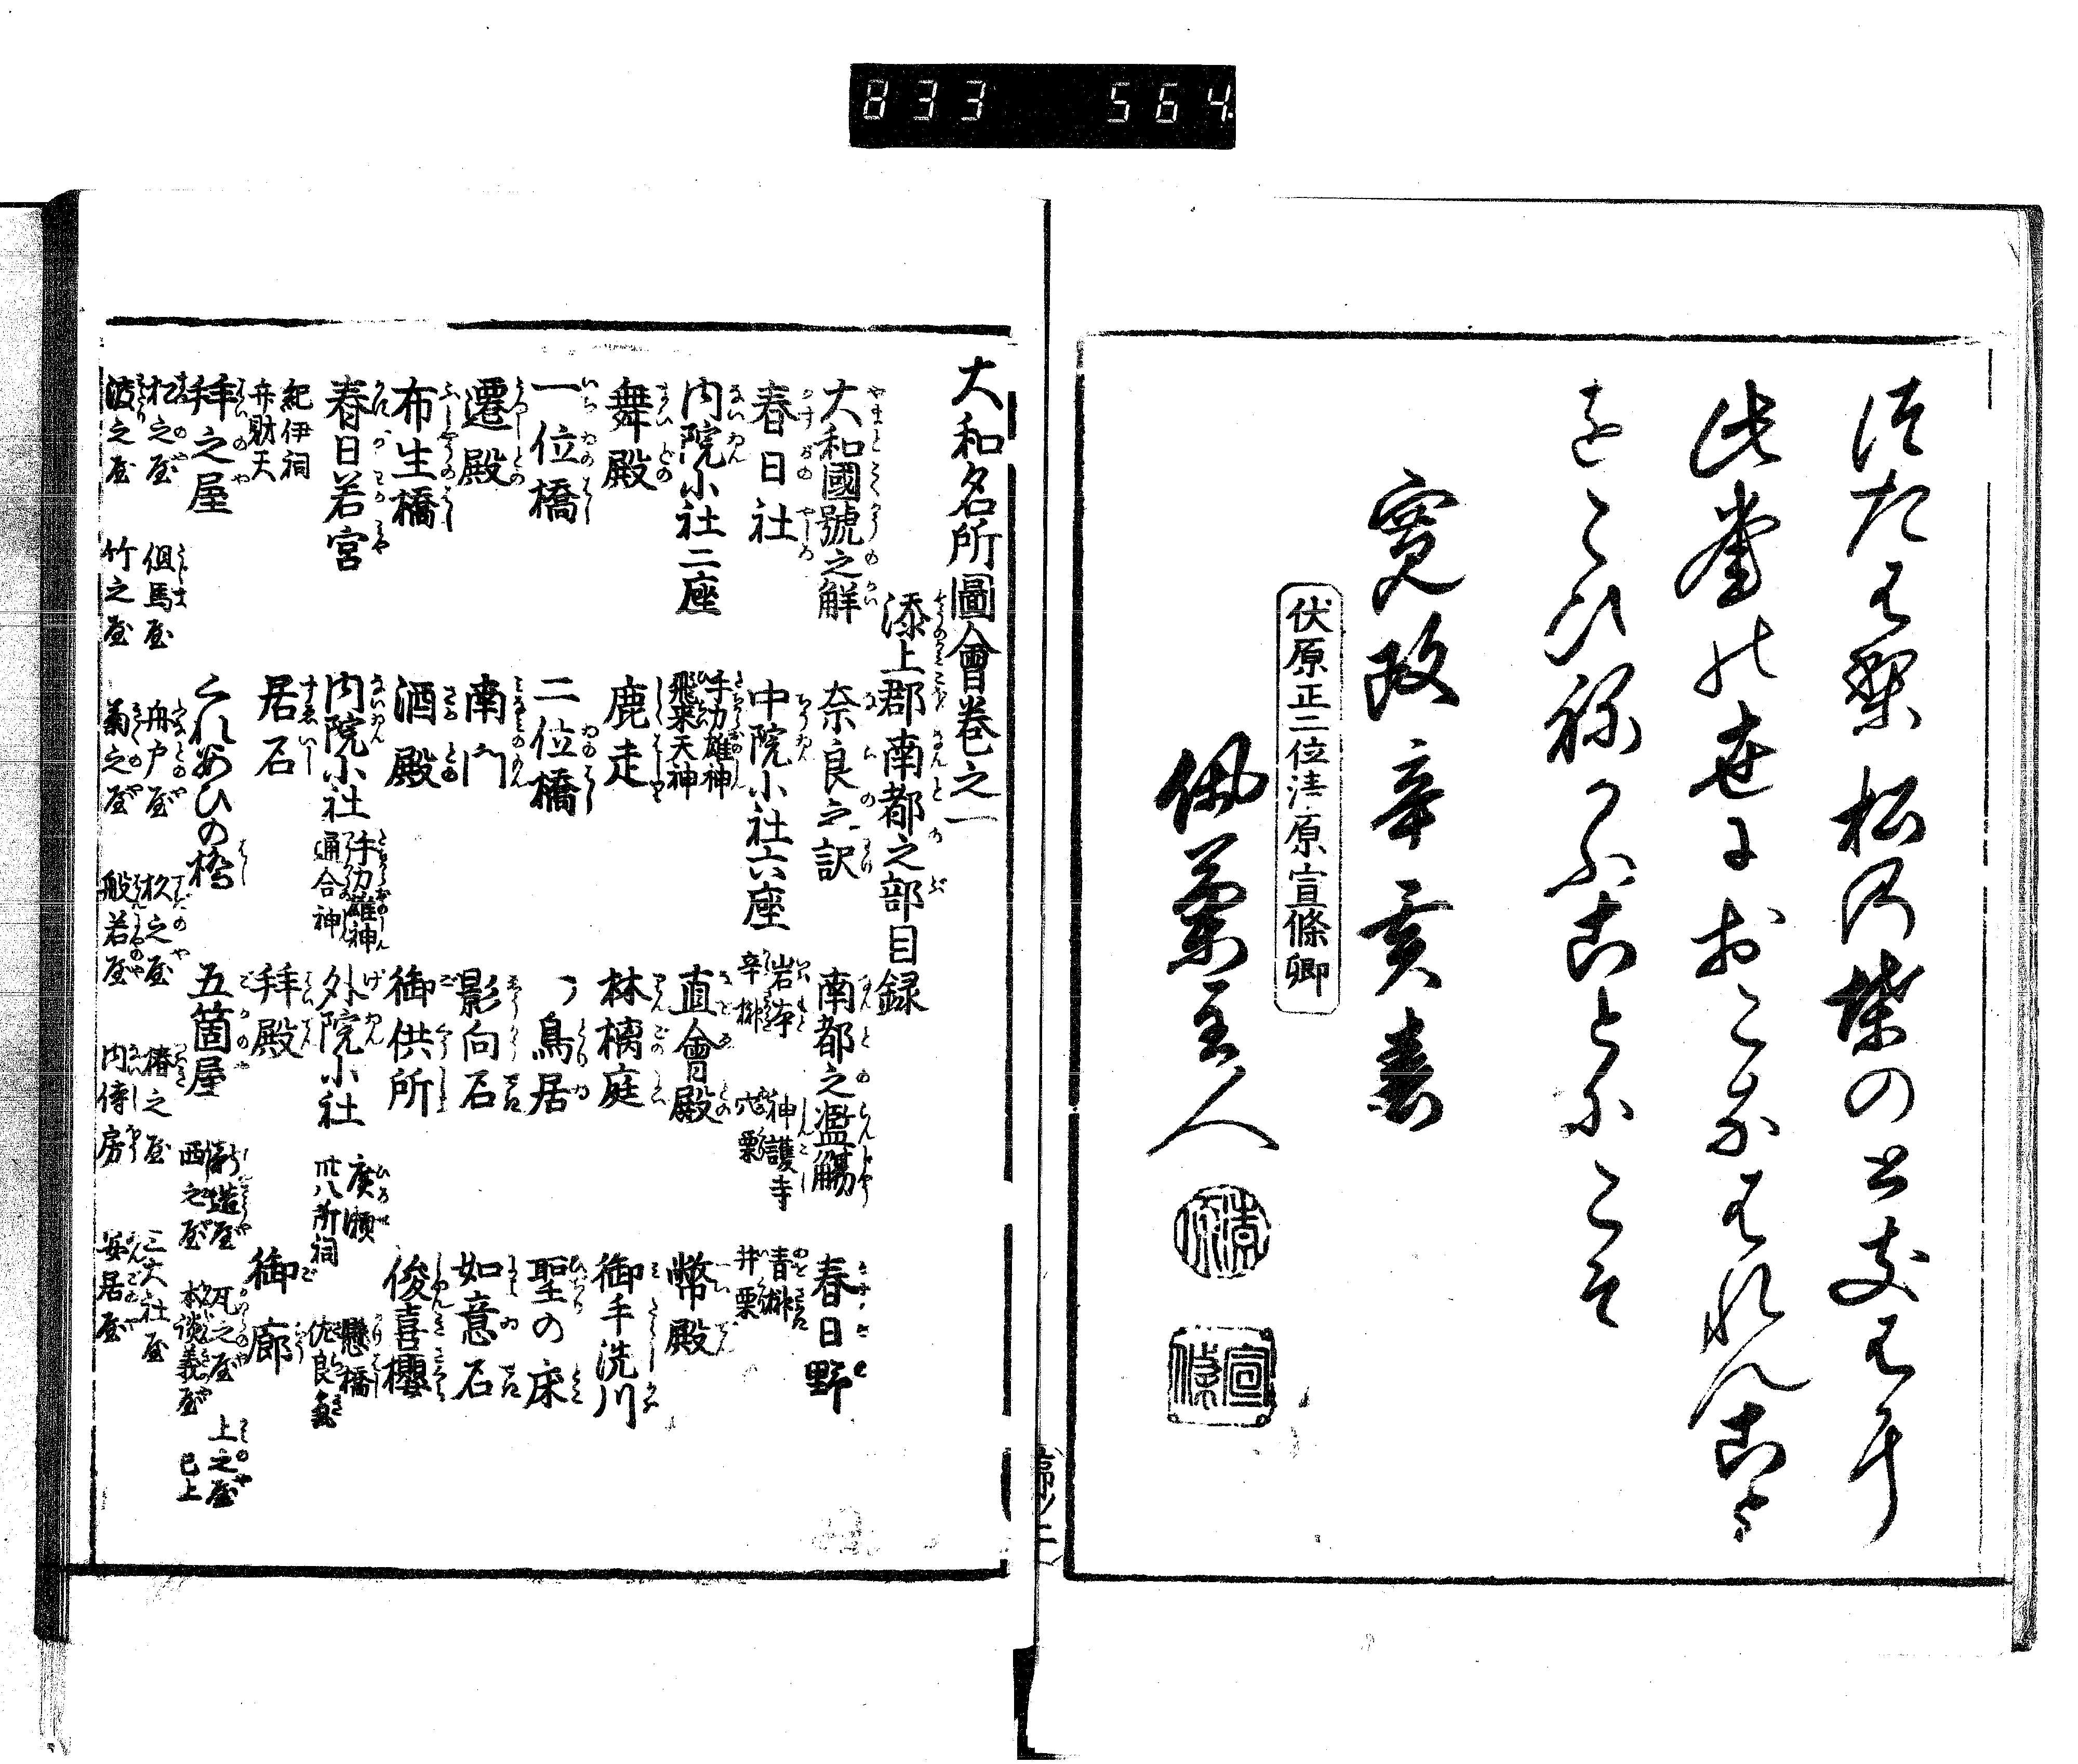 833 564
此巻の世におこなはれんこと
をこひねかふこととにこそ
寛政辛亥春
伏原正二位清原宣條卿
佩蘭主人
宣條
序ノ二
大和名所圖會巻之一
添上郡南都之部目録
大和國號之解 奈良之訳 南都之濫觴 春日野
春日社 中院小社六座 岩本 辛榊 神護寺 穴栗 青榊 井栗
内院小社二座 手力雄神 飛来天神 直會殿 幣殿
舞殿 鹿走 林檎庭 御手洗川
一位橋 二位橋 一鳥居 聖の床
遷殿 南門 影向石 如意石
布生橋 酒殿 御供所 俊喜櫻
春日若宮 内院小社 手力雄神 通合神 外院小社 廣瀬 卅八所祠 懸橋 佐良氣
紀伊祠 弁財天 居石 拝殿 御廊
拝之屋 五箇屋 新造屋 西之屋 瓦之屋 本談義屋 上之屋 已上
松之屋 但馬屋 舟戸屋 杉之屋 椿之屋 三大社屋
渡之屋 竹之屋 菊之屋 般若屋 内侍房 安居屋